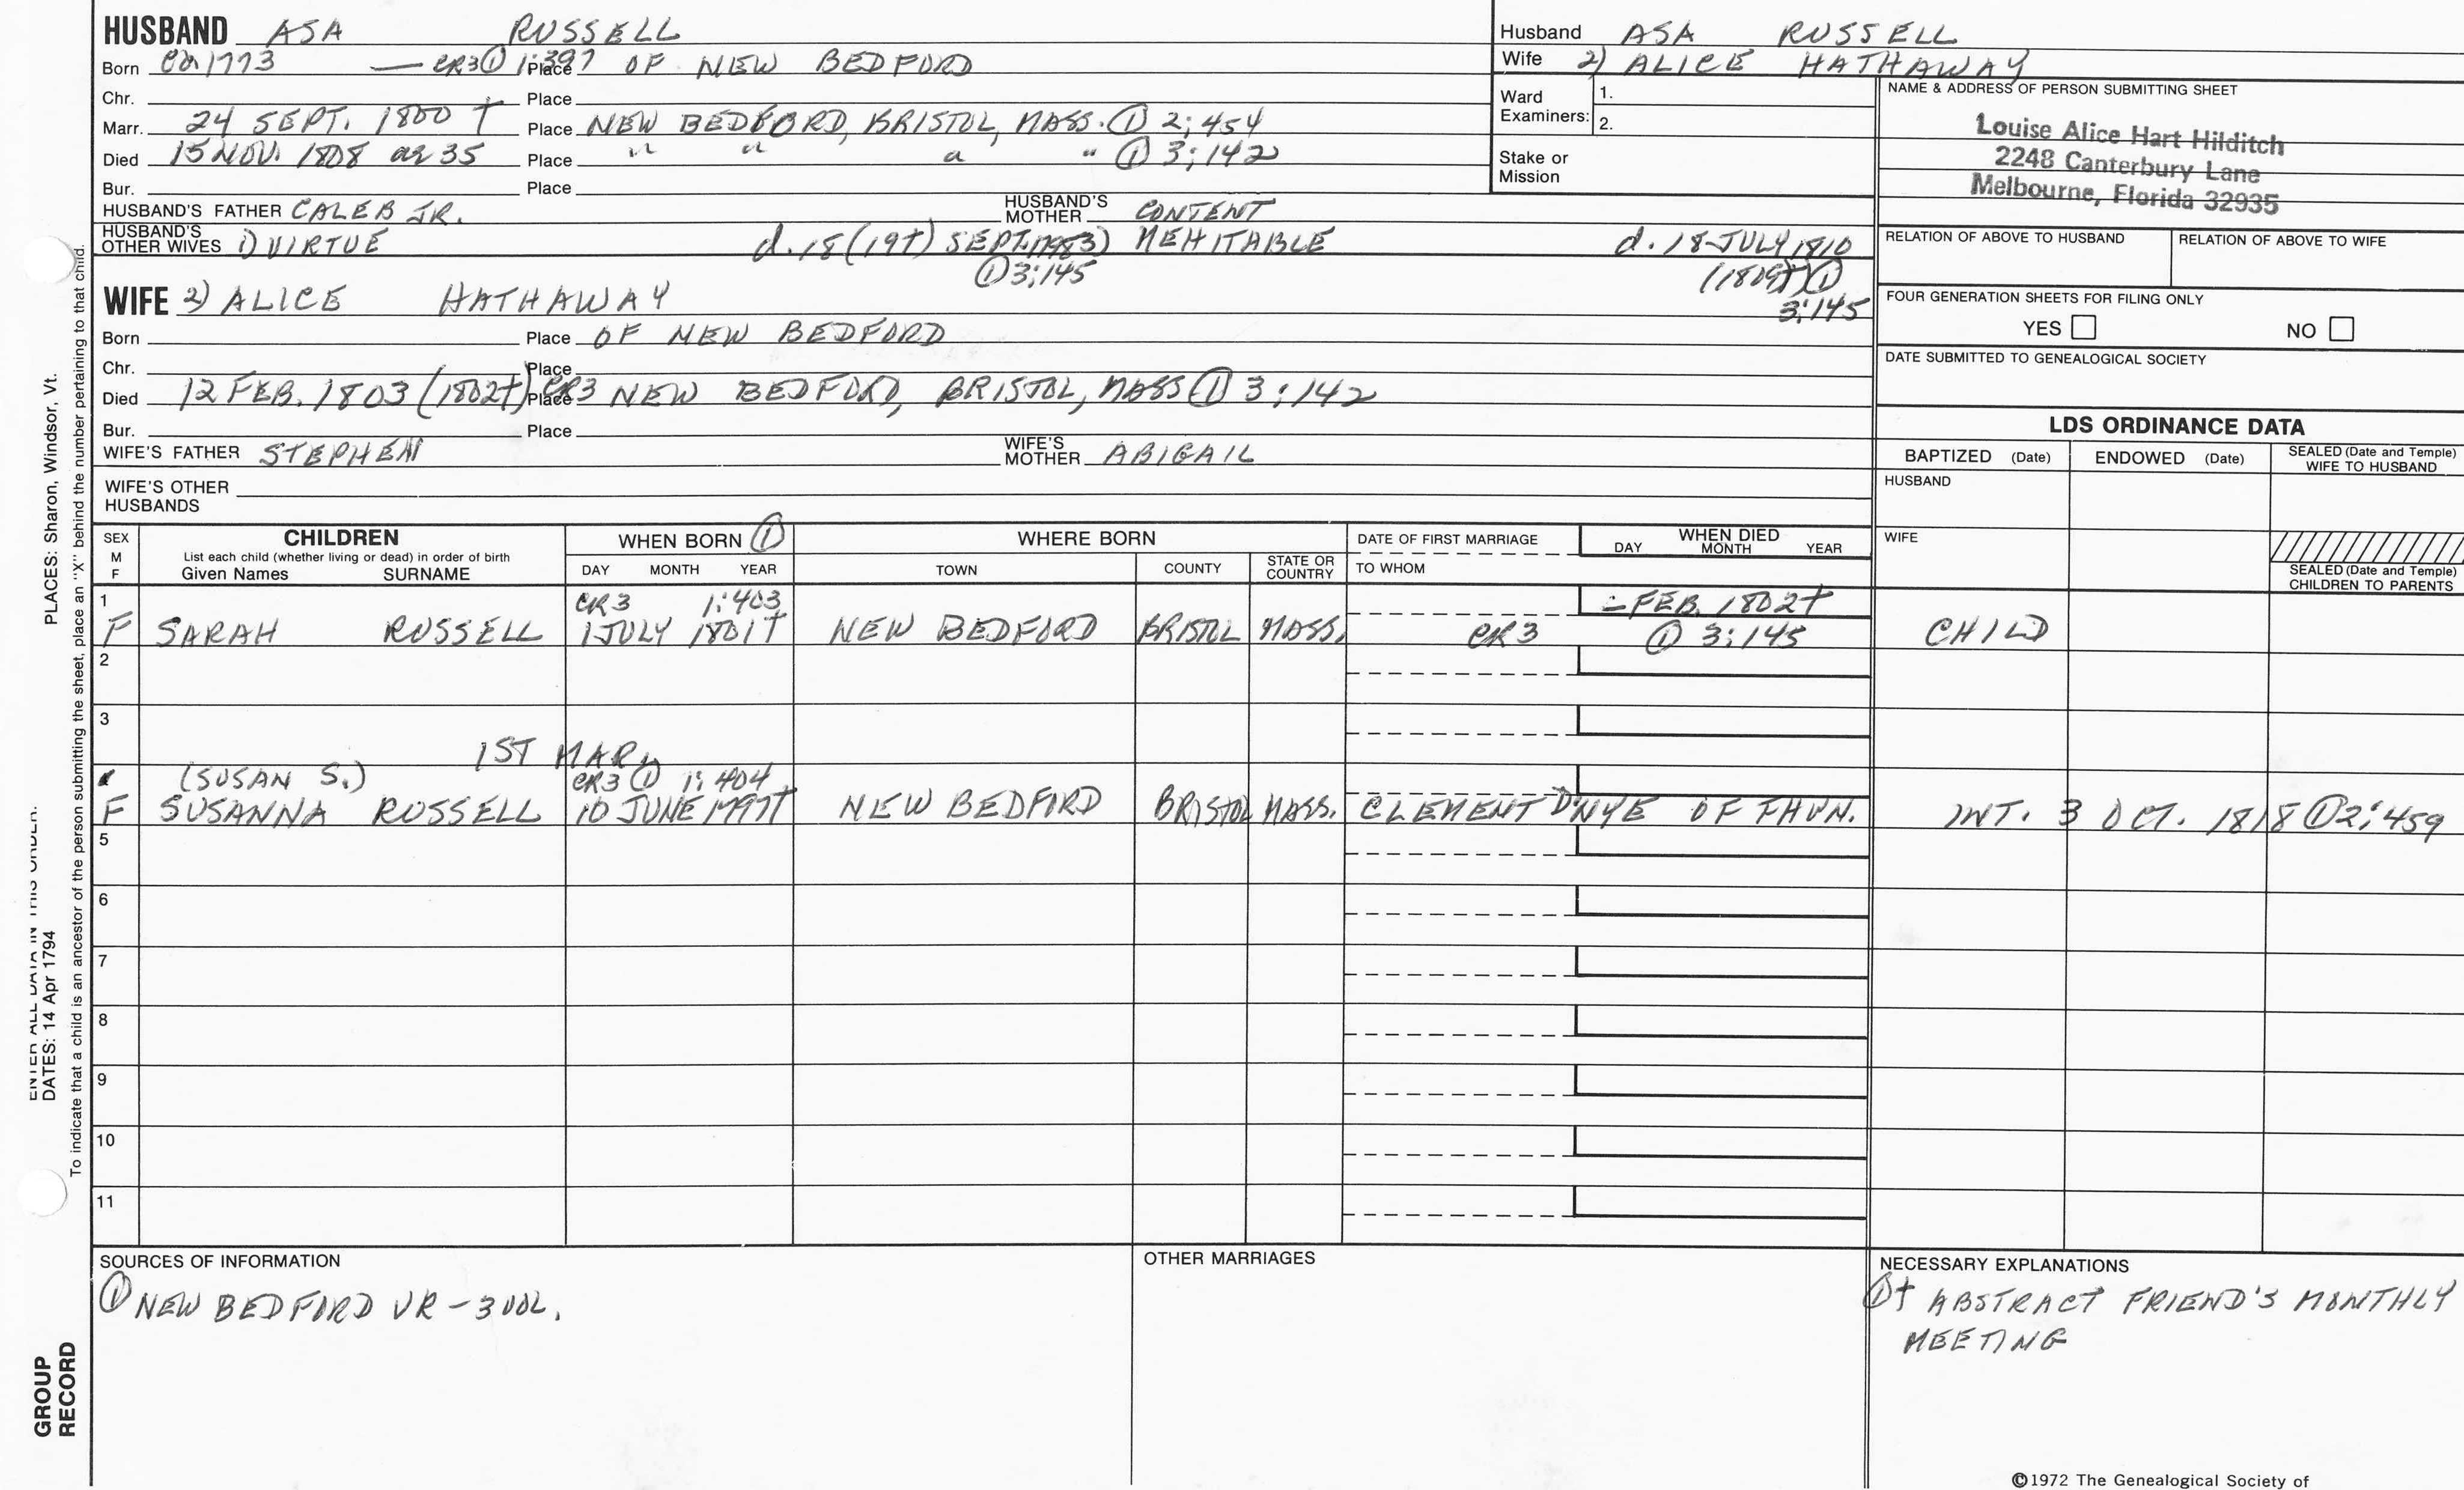 HUSBAND ASA RUSSELL
Born ca 1773 — CR3 ① 1:397 Place OF NEW BEDFORD
Chr. Place
Marr. 24 SEPT. 1800 † Place NEW BEDFORD, BRISTOL, MASS. ① 2:454
Died 15 NOV. 1808 ae 35 Place " " " " ① 3:142
Bur. Place
HUSBAND'S FATHER CALEB JR. HUSBAND'S MOTHER CONTENT
HUSBAND'S OTHER WIVES 1) VIRTUE d. 18 (19†) SEPT. 3) MEHITABLE d. 18 JULY 1810
① 3:145 (1809†) ①
3:145
WIFE 2) ALICE HATHAWAY
Born Place OF NEW BEDFORD
Chr. Place
Died 12 FEB. 1803 (1802†) CR3 Place NEW BEDFORD, BRISTOL, MASS ① 3:142
Bur. Place
WIFE'S FATHER STEPHEN WIFE'S MOTHER ABIGAIL
WIFE'S OTHER HUSBANDS
Husband ASA RUSSELL
Wife 2) ALICE HATHAWAY
Ward Examiners: 1.
2.
Stake or Mission
NAME & ADDRESS OF PERSON SUBMITTING SHEET
Louise Alice Hart Hilditch
2248 Canterbury Lane
Melbourne, Florida 32935
RELATION OF ABOVE TO HUSBAND RELATION OF ABOVE TO WIFE
FOUR GENERATION SHEETS FOR FILING ONLY
YES NO
DATE SUBMITTED TO GENEALOGICAL SOCIETY
LDS ORDINANCE DATA
BAPTIZED (Date) ENDOWED (Date) SEALED (Date and Temple) WIFE TO HUSBAND
HUSBAND
WIFE
SEALED (Date and Temple) CHILDREN TO PARENTS
SEX M F CHILDREN WHEN BORN ① WHERE BORN DATE OF FIRST MARRIAGE WHEN DIED
List each child (whether living or dead) in order of birth DAY MONTH YEAR
Given Names SURNAME DAY MONTH YEAR TOWN COUNTY STATE OR COUNTRY TO WHOM
1 CR3 1:403 - FEB. 1802†
F SARAH RUSSELL 1 JULY 1801† NEW BEDFORD BRISTOL MASS. CR3 ① 3:145 CHILD
2
3
1ST MAR.
(SUSAN S.) CR3 ① 1:404
F SUSANNA RUSSELL 10 JUNE 1797† NEW BEDFORD BRISTOL MASS. CLEMENT D NYE OF FHVN. INT. 3 OCT. 1818 ① 2:459
5
6
7
8
9
10
11
SOURCES OF INFORMATION
① NEW BEDFORD VR - 3 VOL.
OTHER MARRIAGES
NECESSARY EXPLANATIONS
①† ABSTRACT FRIEND'S MONTHLY
MEETING
©1972 The Genealogical Society of
PLACES: Sharon, Windsor, Vt.
DATES: 14 Apr 1794
To indicate that a child is an ancestor of the person submitting the sheet, place an "X" behind the number pertaining to that child.
GROUP
RECORD